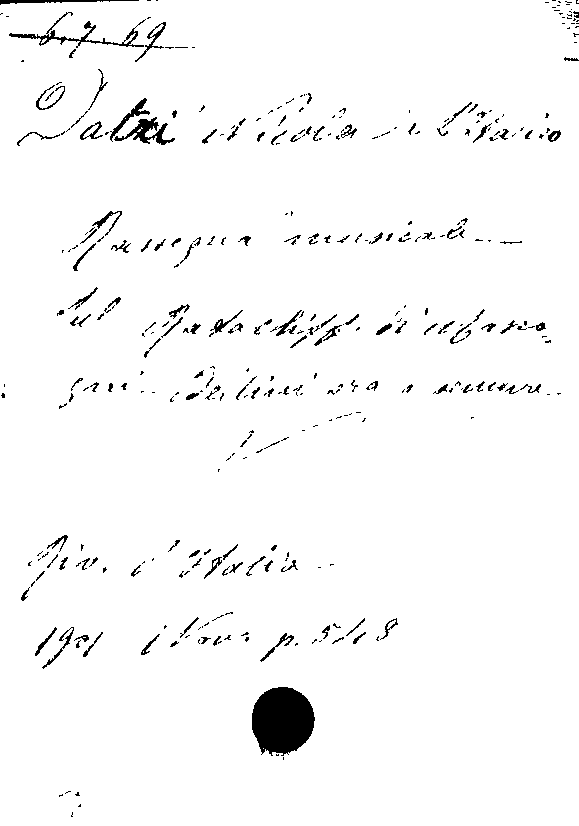 6.7.69
Datri Nicola d'Atasio
Rassegna musicale
Sul Ratacliff di Masca-
gni Bellini ora e sempre
Riv. d'Italia
1901 i Nov. p. 548